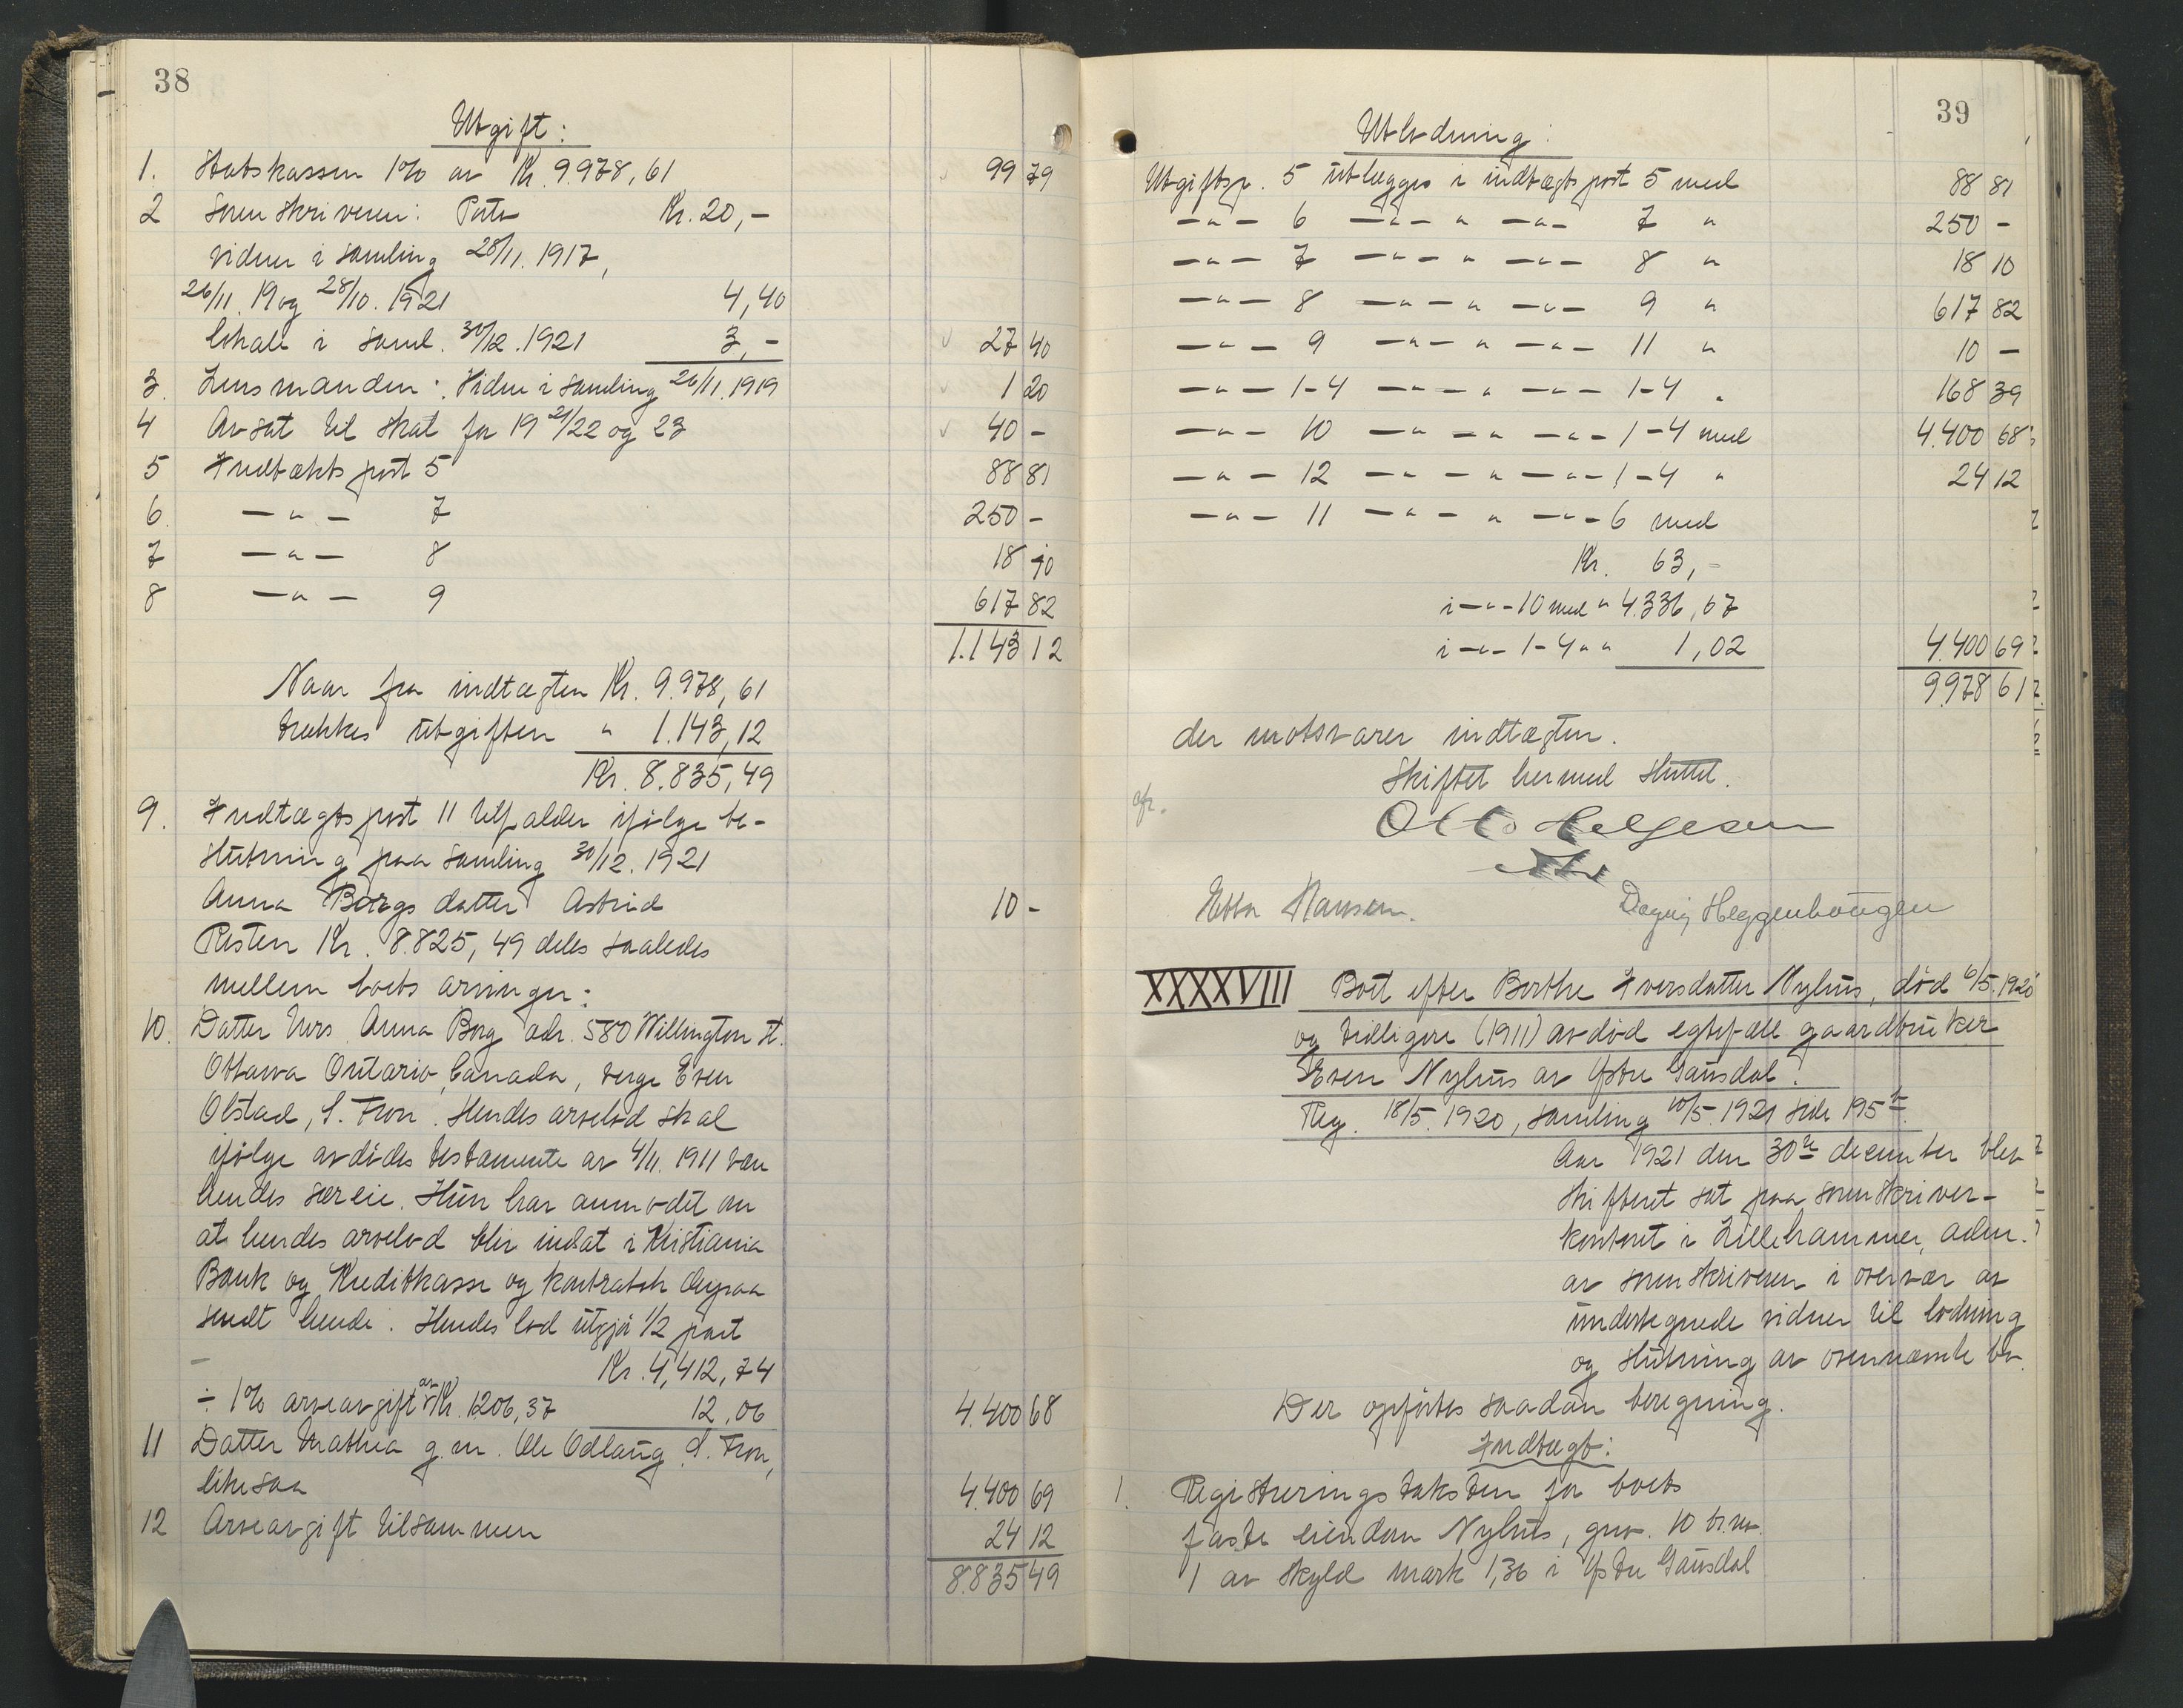 38
Utgift:
1. Statskassen 1% av Kr. 9.978,61 99 79
2 Sorenskriveren: Porto Kr. 20,-
vidner i samling 28/11. 1917,
26/11. 19 og 28/10. 1921 4,40
lokale i saml. 30/12. 1921 3,- 27 40
3. Lensmanden: Vidne i samling 26/11. 1919 1 20
4 Avsat til skat for 19 21/22 og 23 40 -
5 Indtækts post 5 88 81
6. -"- 7 250 -
7 -"- 8 18 10
8 -"- 9 617 82
1.143 12
Naar fra indtægten Kr. 9.978,61
trækkes utgiften " 1.143,12
Kr. 8.835,49
9. Indtægts post 11 tilfalder ifølge be-
slutning paa samling 30/12. 1921
Anna Borgs datter Astrid 10 -
Resten Kr. 8.825,49 deles saaledes
mellem boets arvinger:
10. Datter Mrs. Anna Borg adr. 580 Willington st.
Ottawa Ontario, Canada, verge Even
Olstad, S. Fron. Hendes arvelod skal
ifølge avdødes testamente av 4/11. 1911 være
hendes særeie. Hun har anmodet om
at hendes arvelod blir indsat i Kristiania
Bank og Kreditkasse og kontrabok derpaa
sendt hende. Hendes lod utgjør 1/2 part
Kr. 4,412,74
÷ 1% arveavgift av Kr. 1206,37 12,06 4.400 68
11 Datter Mathea g.m. Ole Odlaug S. Fron,
likesaa 4.400 69
12 Arveavgift tilsammen 24 12
8.835 49
39
Utlodning:
Utgiftsp. 5 utlægges i indtægts post 5 med 88 81
-"- 6 -"- " -"- 7 " 250 -
-"- 7 -"- " -"- 8 " 18 10
-"- 8 -"- " -"- 9 " 617 82
-"- 9 -"- " -"- 11 " 10 -
-"- 1-4 -"- " -"- 1-4 " 168 39
-"- 10 -"- " -"- 1-4 med 4.400 68
-"- 12 -"- " -"- 1-4 " 24 12
-"- 11 -"- " -"- 6 med
Kr. 63,-
i -"- 10 med " 4.336,67
i -"- 1-4 " " 1,02 4.400 69
9978 61
der motsvarer indtægten.
Skiftet hermed sluttet.
Otto Helgesen
Ebba Hansen. Dagny Heggenhougen
XXXXVIII Boet efter Berthe Iversdatter Nyhus, død 6/5. 1920
og tidligere (1911) avdød egtefælle gaardbruker
Even Nyhus av Østre Gausdal.
Reg. 18/5. 1920, samling 10/5. 1921 side 195 b.
Aar 1921 den 30te december blev
skifteret sat paa sorenskriver-
kontoret i Lillehammer, adm.
av sorenskriveren i overvær av
undertegnede vidner til lodning
og slutning av ovennævnte bo.
Der opførtes saadan beregning.
Indtægt:
1. Registreringstaksten for boets
faste eiendom Nyhus, gnr. 10 br.nr.
1 av skyld mark 1,36 i Østre Gausdal